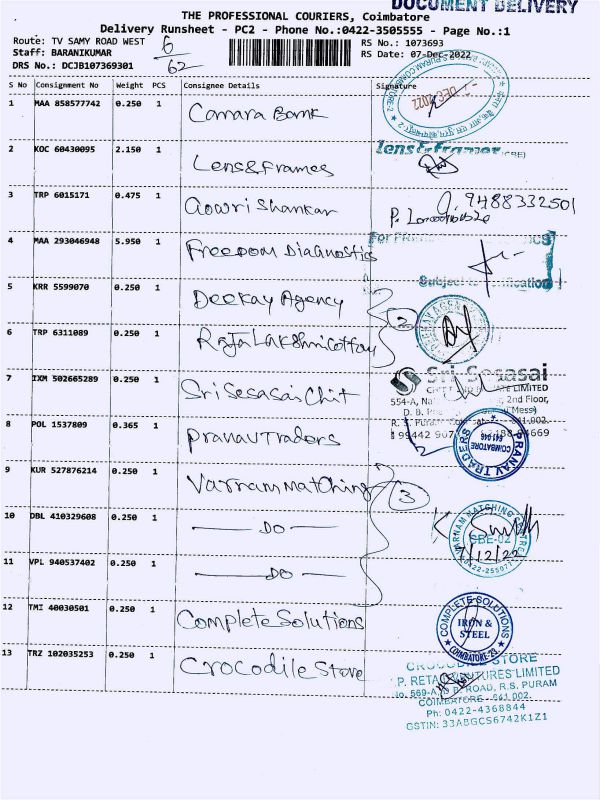 DOCUMENT DELIVERY
THE PROFESSIONAL COURIERS, Coimbatore
Delivery Runsheet - PC2 - Phone No.:0422-3505555 - Page No.:1
Route: TV SAMY ROAD WEST 6 RS No.: 1073693
Staff: BARANIKUMAR RS Date: 07-Dec-2022
DRS No.: DCJB107369301 62
S No Consignment No Weight PCS Consignee Details Signature
1 MAA 858577742 0.250 1 Canara Bank
DEC 2022
2 KOC 60430095 2.150 1 Lens&frames Lens&frames (CBE)
3 TRP 6015171 0.475 1 Gowri Shankar 9488332501
4 MAA 293046948 5.950 1 Freedom Diagnostics
5 KRR 5599070 0.250 1 Deekay Agency 2
6 TRP 6311089 0.250 1
7 IXM 502665289 0.250 1 Sri Sesasai Chit Sri Sesasai
LIMITED
554-A, 2nd Floor,
8 POL 1537809 0.365 1 Pranav Traders
PRANAV TRADERS COIMBATORE 641 046
9 KUR 527876214 0.250 1 Varnam Matching 3
10 DBL 410329608 0.250 1 DO
VARNAM MATCHING CENTRE
7/12/22
11 VPL 940537402 0.250 1 DO
12 TMI 40030501 0.250 1 Complete Solutions
COMPLETE SOLUTIONS IRON & STEEL COIMBATORE-23
13 TRZ 102035253 0.250 1 Crocodile Store
CROCODILE STORE
ROAD, R.S. PURAM
COIMBATORE - 641 002.
Ph: 0422-4368844
GSTIN: 33ABGCS6742K1Z1